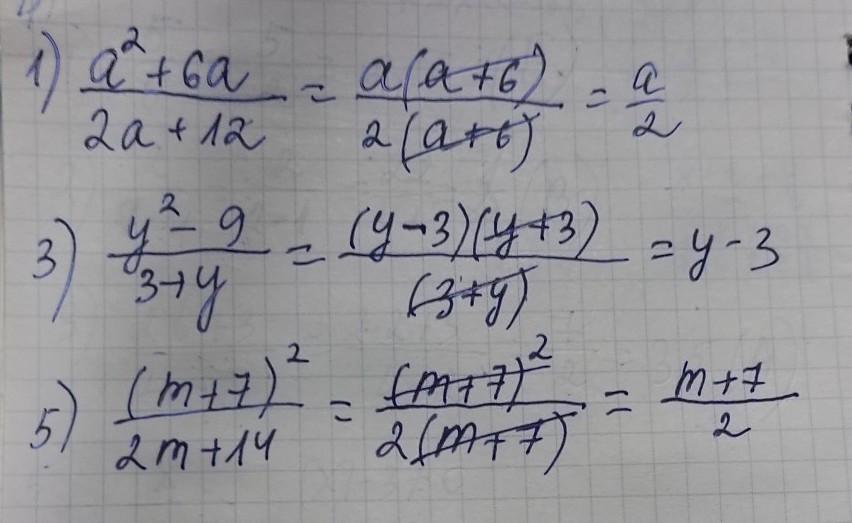 1) (a² + 6a)/(2a + 12) = a(a+6)/2(a+6) = a/2
3) (y² - 9)/(3+y) = (y-3)(y+3)/(3+y) = y - 3
5) (m+7)²/(2m+14) = (m+7)²/2(m+7) = (m+7)/2